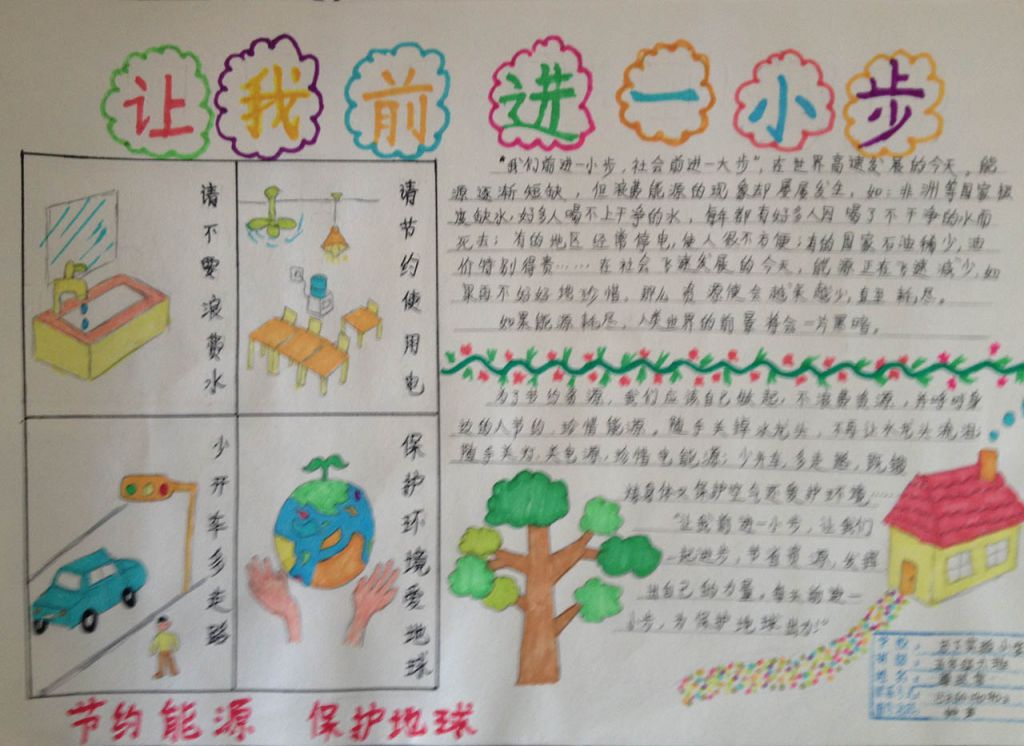 让我前进一小步
请不要浪费水
请节约使用电
少开车多走路
保护环境爱地球
节约能源 保护地球
"我们前进一小步,社会前进一大步",在世界高速发展的今天,能
源逐渐短缺,但浪费能源的现象却屡屡发生。如:非洲等国家极
度缺水,好多人喝不上干净的水,每年都有好多人因喝了不干净的水而
死去;有的地区经常停电,使人很不方便;有的国家石油稀少,油
价特别得贵……在社会飞速发展的今天,能源正在飞速减少,如
果再不好好地珍惜,那么资源便会越来越少,直至耗尽。
如果能源耗尽,人类世界的前景将会一片黑暗。
为了节约资源,我们应该自己做起,不浪费资源,并呼吁身
边的人节约,珍惜能源。随手关掉水龙头,不再让水龙头流泪
随手关灯,关电源,珍惜电能源;少开车,多走路,既锻
炼身体又保护空气还爱护环境……
"让我前进一小步,让我们
一起进步,节省资源,发挥
出自己的力量,每天前进一
小步,为保护地球出力!"